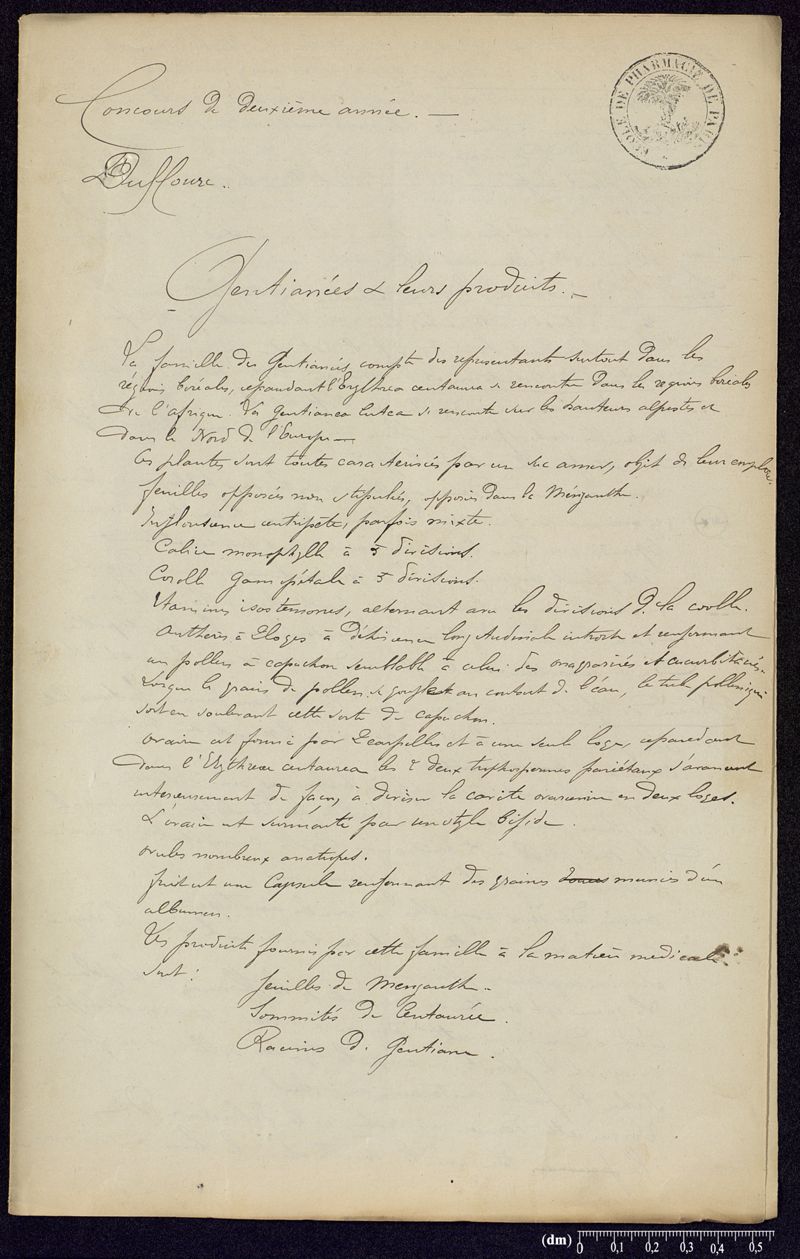 Concours de deuxième année. —
ECOLE DE PHARMACIE DE PARIS
Duffourc.
Gentianées & leurs produits. —
La famille des Gentianées compte des représentants surtout dans les
régions boréales, cependant l'Erythrea centaurea se rencontre dans les régions boréales
de l'afrique. La Gentianea lutea se rencontre sur les hauteurs alpestres et
dans le Nord de l'Europe —
Ces plantes sont toutes caractérisées par un suc amer, objet de leur emploi.
feuilles opposées non stipulées, opposées dans la Ményanthe.
Inflorescence centripète, parfois mixte.
Calice monophylle à 5 divisions.
Corolle gamopétale à 5 divisions.
Etamines isostémones, alternant avec les divisions de la corolle.
Anthères à 2 loges à déhiscence longitudinale introrse et renfermant
un pollen à capuchon semblable à celui des onagrariées et cucurbitacées.
Lorsque le grain de pollen se gonfle au contact de l'eau, le tube pollinique
sort en soulevant cette sorte de capuchon.
ovaire est formé par 2 carpelles et à une seule loge, cependant
dans l'Erythrea centaurea les deux trophospermes pariétaux s'avancent
intérieurement de façon à diviser la cavité ovarienne en deux loges.
L'ovaire est surmonté par un style bifide.
ovules nombreux anatropes.
fruit est une Capsule renfermant des graines munies d'un
albumen.
Les produits fournis par cette famille à la matière médicale
sont :
feuilles de Menyanthe.
Sommités de Centaurée.
Racines de Gentiane.
(dm) 0 0,1 0,2 0,3 0,4 0,5